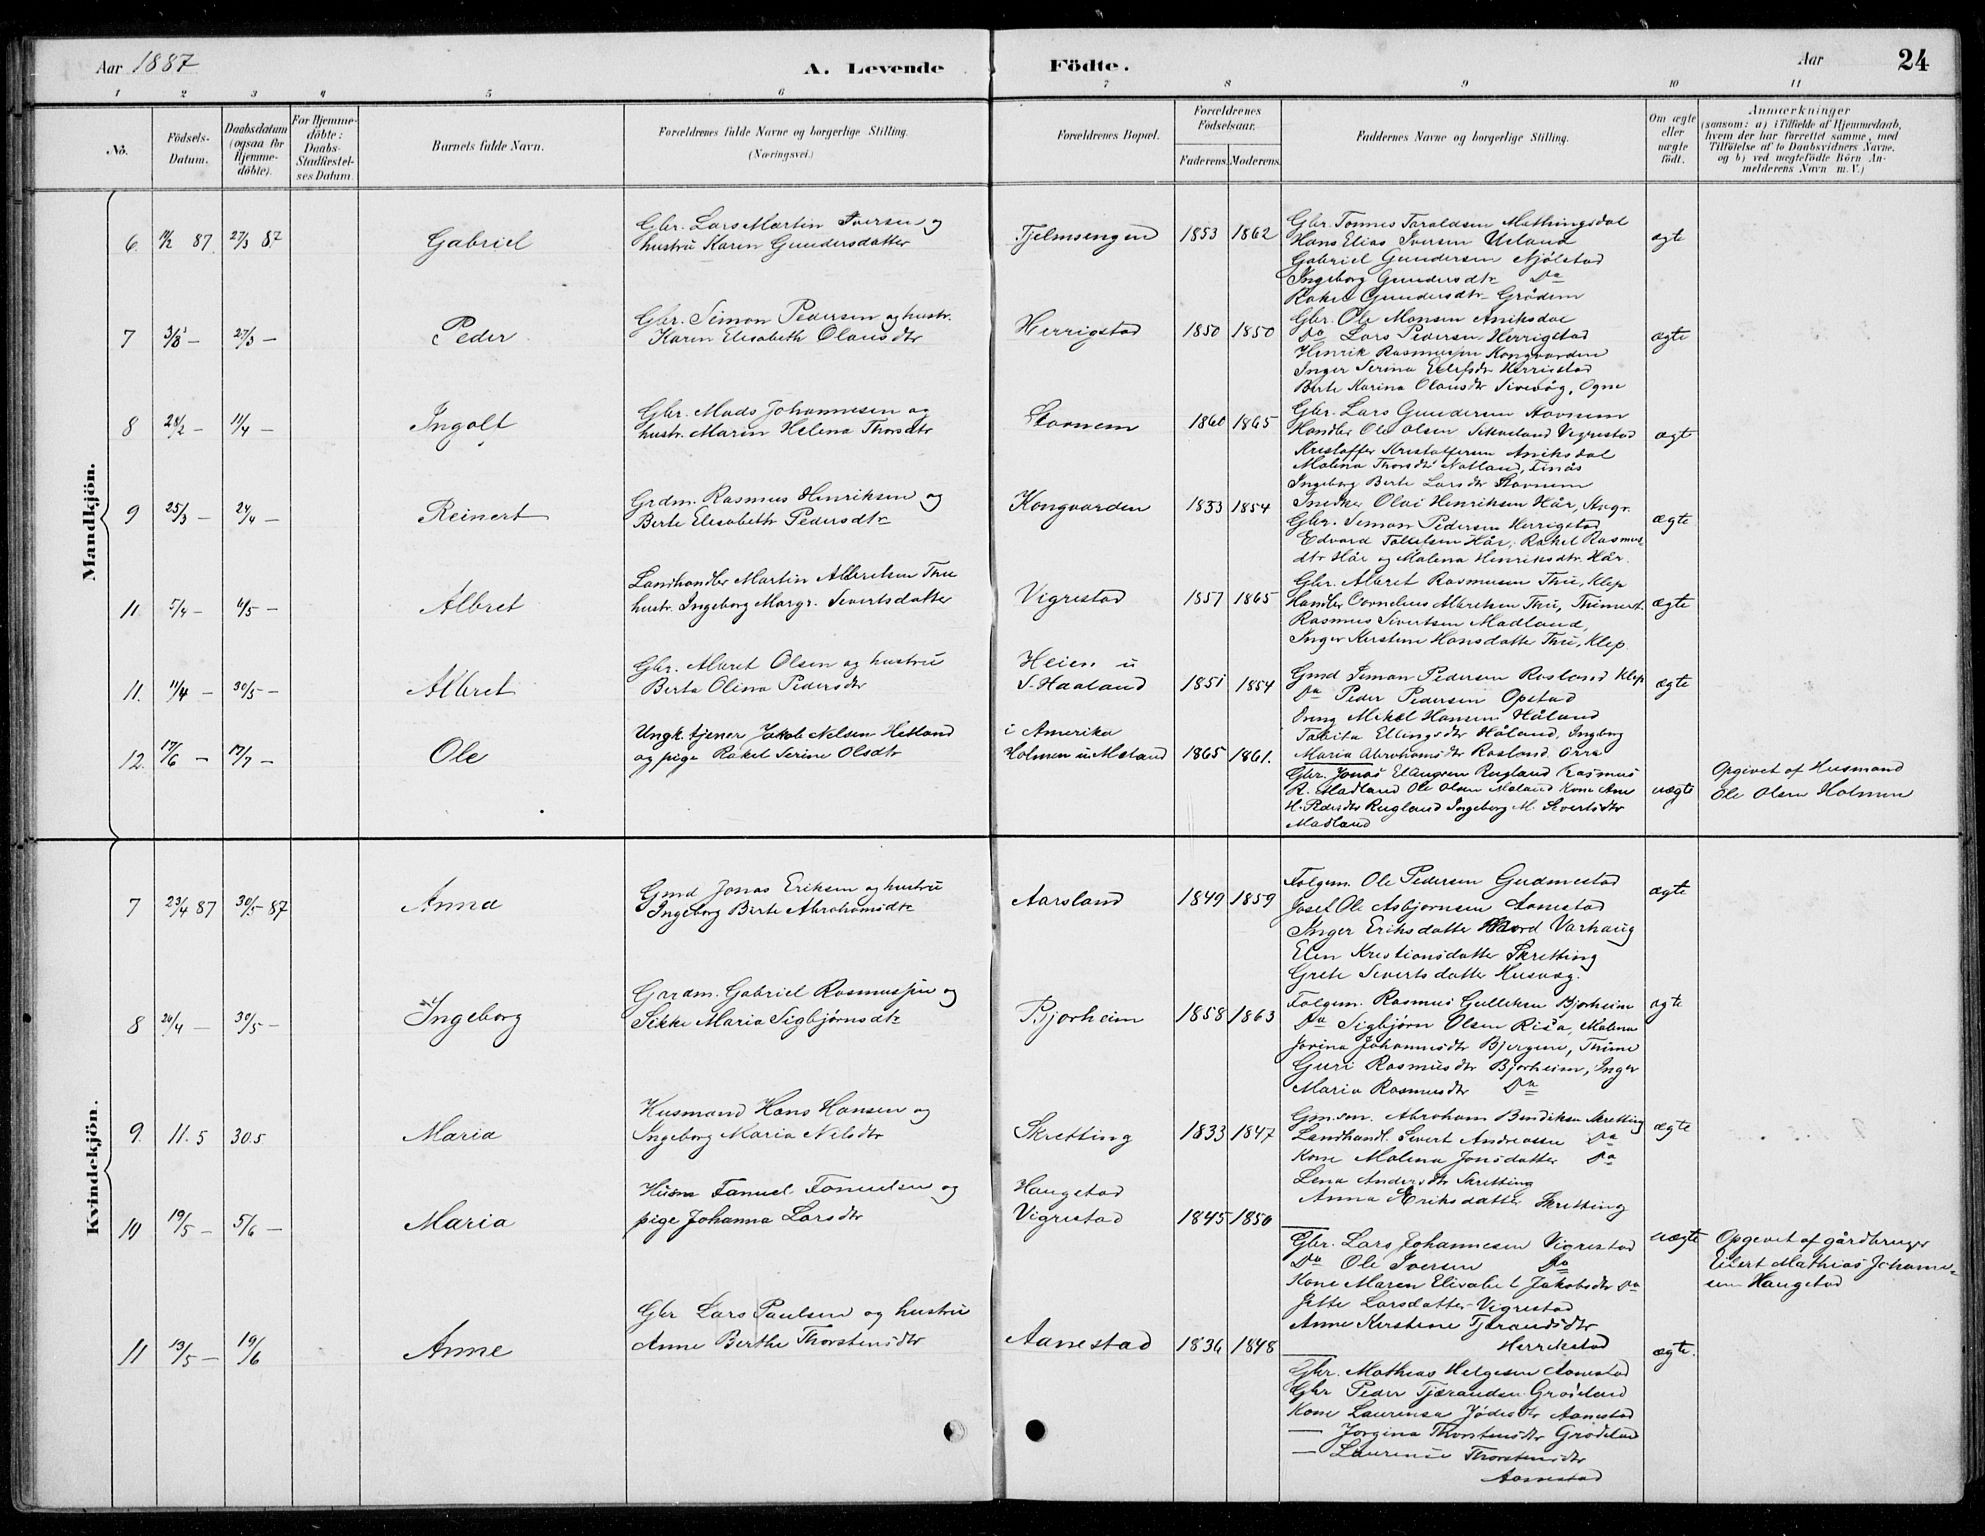 Aar 1887
A. Levende Födte.
Aar
24
1 2 3 4 5 6 7 8 9 10 11
No.
Födsels-Datum.
Daabsdatum (ogsaa for Hjemme-döbte).
For Hjemme-döbte: Daabs-Stadfæstel-ses Datum.
Barnets fulde Navn.
Forældrenes fulde Navne og borgerlige Stilling.
(Næringsvei.)
Forældrenes Bopæl.
Forældrenes Födselsaar.
Faderens. Moderens.
Faddernes Navne og borgerlige Stilling.
Om ægte eller uægte födt.
Anmærkninger
(saasom: a) i Tilfælde af Hjemmedaab, hvem der har forrettet samme, med Tilföielse af to Daabsvidners Navne, og b) ved uægtefödte Börn An-melderens Navn m. V.)
Mandkjön.
6. 11/2 87. 27/3 87. Gabriel
Gbr. Lars Martin Iversen og
hustru Karen Gundersdatter
Tjelmsengen 1853 1862
Gbr. Tonnes Taraldsen Methingsdal
Hans Elias Iversen Ueland
Gabriel Gundersen Njølstad
Ingeborg Gundersdtr Do
Rakel Gundersdtr Grødem
ægte
7 3/3 — 27/3 — Peder
Gbr. Simon Pedersen og hustr.
Karen Elisabeth Olausdtr
Herrigstad 1850 1850
Gbr. Ole Monsen Aniksdal
Do Lars Pedersen Herrigstad
Henrik Rasmussen Kongvarden
Inger Serina Herrigstad
Berte Karina Olausdtr Ogne
ægte
8 28/2 — 11/4 — Ingolf
Gbr. Mads Johannesen og
hustr. Maren Helena Thorsdtr
Stavnem 1860 1865
Gbr. Lars Gundersen Stavnem
Handler Ole Olsen Vigrestad
Kristoffer Kristoffersen Aniksdal
Malina Thorsdtr Natland,
Ingeborg Berte Larsdtr Stavnem
ægte
9 25/3 — 24/4 — Reinert
Grdm. Rasmus Henriksen og
Berte Elisabeth Pedersdtr
Kongvarden 1853 1854
Snedker Olai Henriksen Hår,
Gbr. Simon Pedersen Herrigstad
Edvard Tollefsen Hår, Rakel Rasmus-
dtr Hår og Malena Henriksdtr. Hår.
ægte
11 5/4 — 11/5 — Albret
Landhandler Martin Albretsen Thu
hustr. Ingeborg Margr. Sivertsdatter
Vigrestad 1857 1865
Gbr. Albret Rasmusen Thu, Klep
Handler Cornelius Albretsen Thu,
Rasmus Sivertsen Madland,
Inger Kerstine Hansdatter Thu, Klep.
ægte
11. 11/4 — 30/5 — Albret
Gbr. Albret Olsen og hustru
Berta Olina Pedersdtr
Heien u
S. Haaland 1851 1854
Gmd Simon Pedersen Rosland Klep
Do Peder Pedersen Opstad
Dreng Mikal Hansen Håland
Tabita Ellingsdtr Håland, Ingeborg
Maria Abrahamsdtr Rosland Orre
ægte
12. 17/6 — 17/7 — Ole
Ungk. tjener Jakob Nelsen Hetland
og pige Rakel Serine Olsdtr
i Amerika
Holmen u. Møland 1865 1861.
Gbr. Jonas Rugland Rasmus
R. Madland Ole Olsen Møland Kone Ane
H. Pedersdtr Rugland Ingeborg M. Sivertsdtr
Madland
uægte
Opgivet af Husmand
Ole Olsen Holmen
Kvindekjön.
7 23/4 87 30/5 87 Anna
Gmd Jonas Eriksen og hustru
Ingeborg Berte Abrahamsdtr
Aarsland 1849 1859
Folgem. Ole Pedersen Gudmestad
Josef Ole Asbjørnsen Aanestad
Inger Eriksdatter Varhaug
Elen Kristiansdatter Skretting
Grete Sivertsdatter
ægte
8 20/4 — 30/5 — Ingeborg
Gardm. Gabriel Rasmussen og
Sikke Maria Sigbjørnsdtr
Bjorheim 1858 1863
Folgem. Rasmus Gulliksen Bjorheim
Do Sigbjørn Olsen Risa, Malena
Jorina Johannesdtr Bjergene, Thime
Guri Rasmusdtr Bjorheim, Inger
Maria Rasmusdtr Do
ægte
9. 11.5 30.5 Maria
Husmand Hans Hansen og
Ingeborg Maria Nilsdtr
Skretting 1833 1847
Gm.søn. Abraham Bendiksen Skretting
Landhandl. Sivert Andreassen Do
Kone Malena Jonsdatter Do
Lena Andersdtr Skretting
Anna Eriksdatter Skretting
ægte
10 19/5 — 5/6 — Maria
Husm Samuel Samuelsen og
pige Johanna Larsdtr
Haugstad
Vigrestad 1845 1850
Gbr. Lars Johannesen Vigrestad
Do Ole Iversen Do
Kone Maren Elisabet Jakobsdtr Do
Jette Larsdatter Vigrestad
Anne Kerstine Tjerandsdtr
Herrikstad
uægte
Opgevet af gårdbruger
Eilert Mathias Johanne-
sen Haugstad
11 13/5 — 19/6 Anne
Gbr Lars Paulsen og hustru
Anne Berthe Thorstensdtr
Aanestad 1836 1848
Gbr. Mathias Helgesen Aanestad
Gbr Peder Tjærandsen Grødeland
Kone Laurensa Aanestad
— Jorgina Thorstensdtr Grødeland
— Laurense Thorstensdtr
Aanestad
ægte.